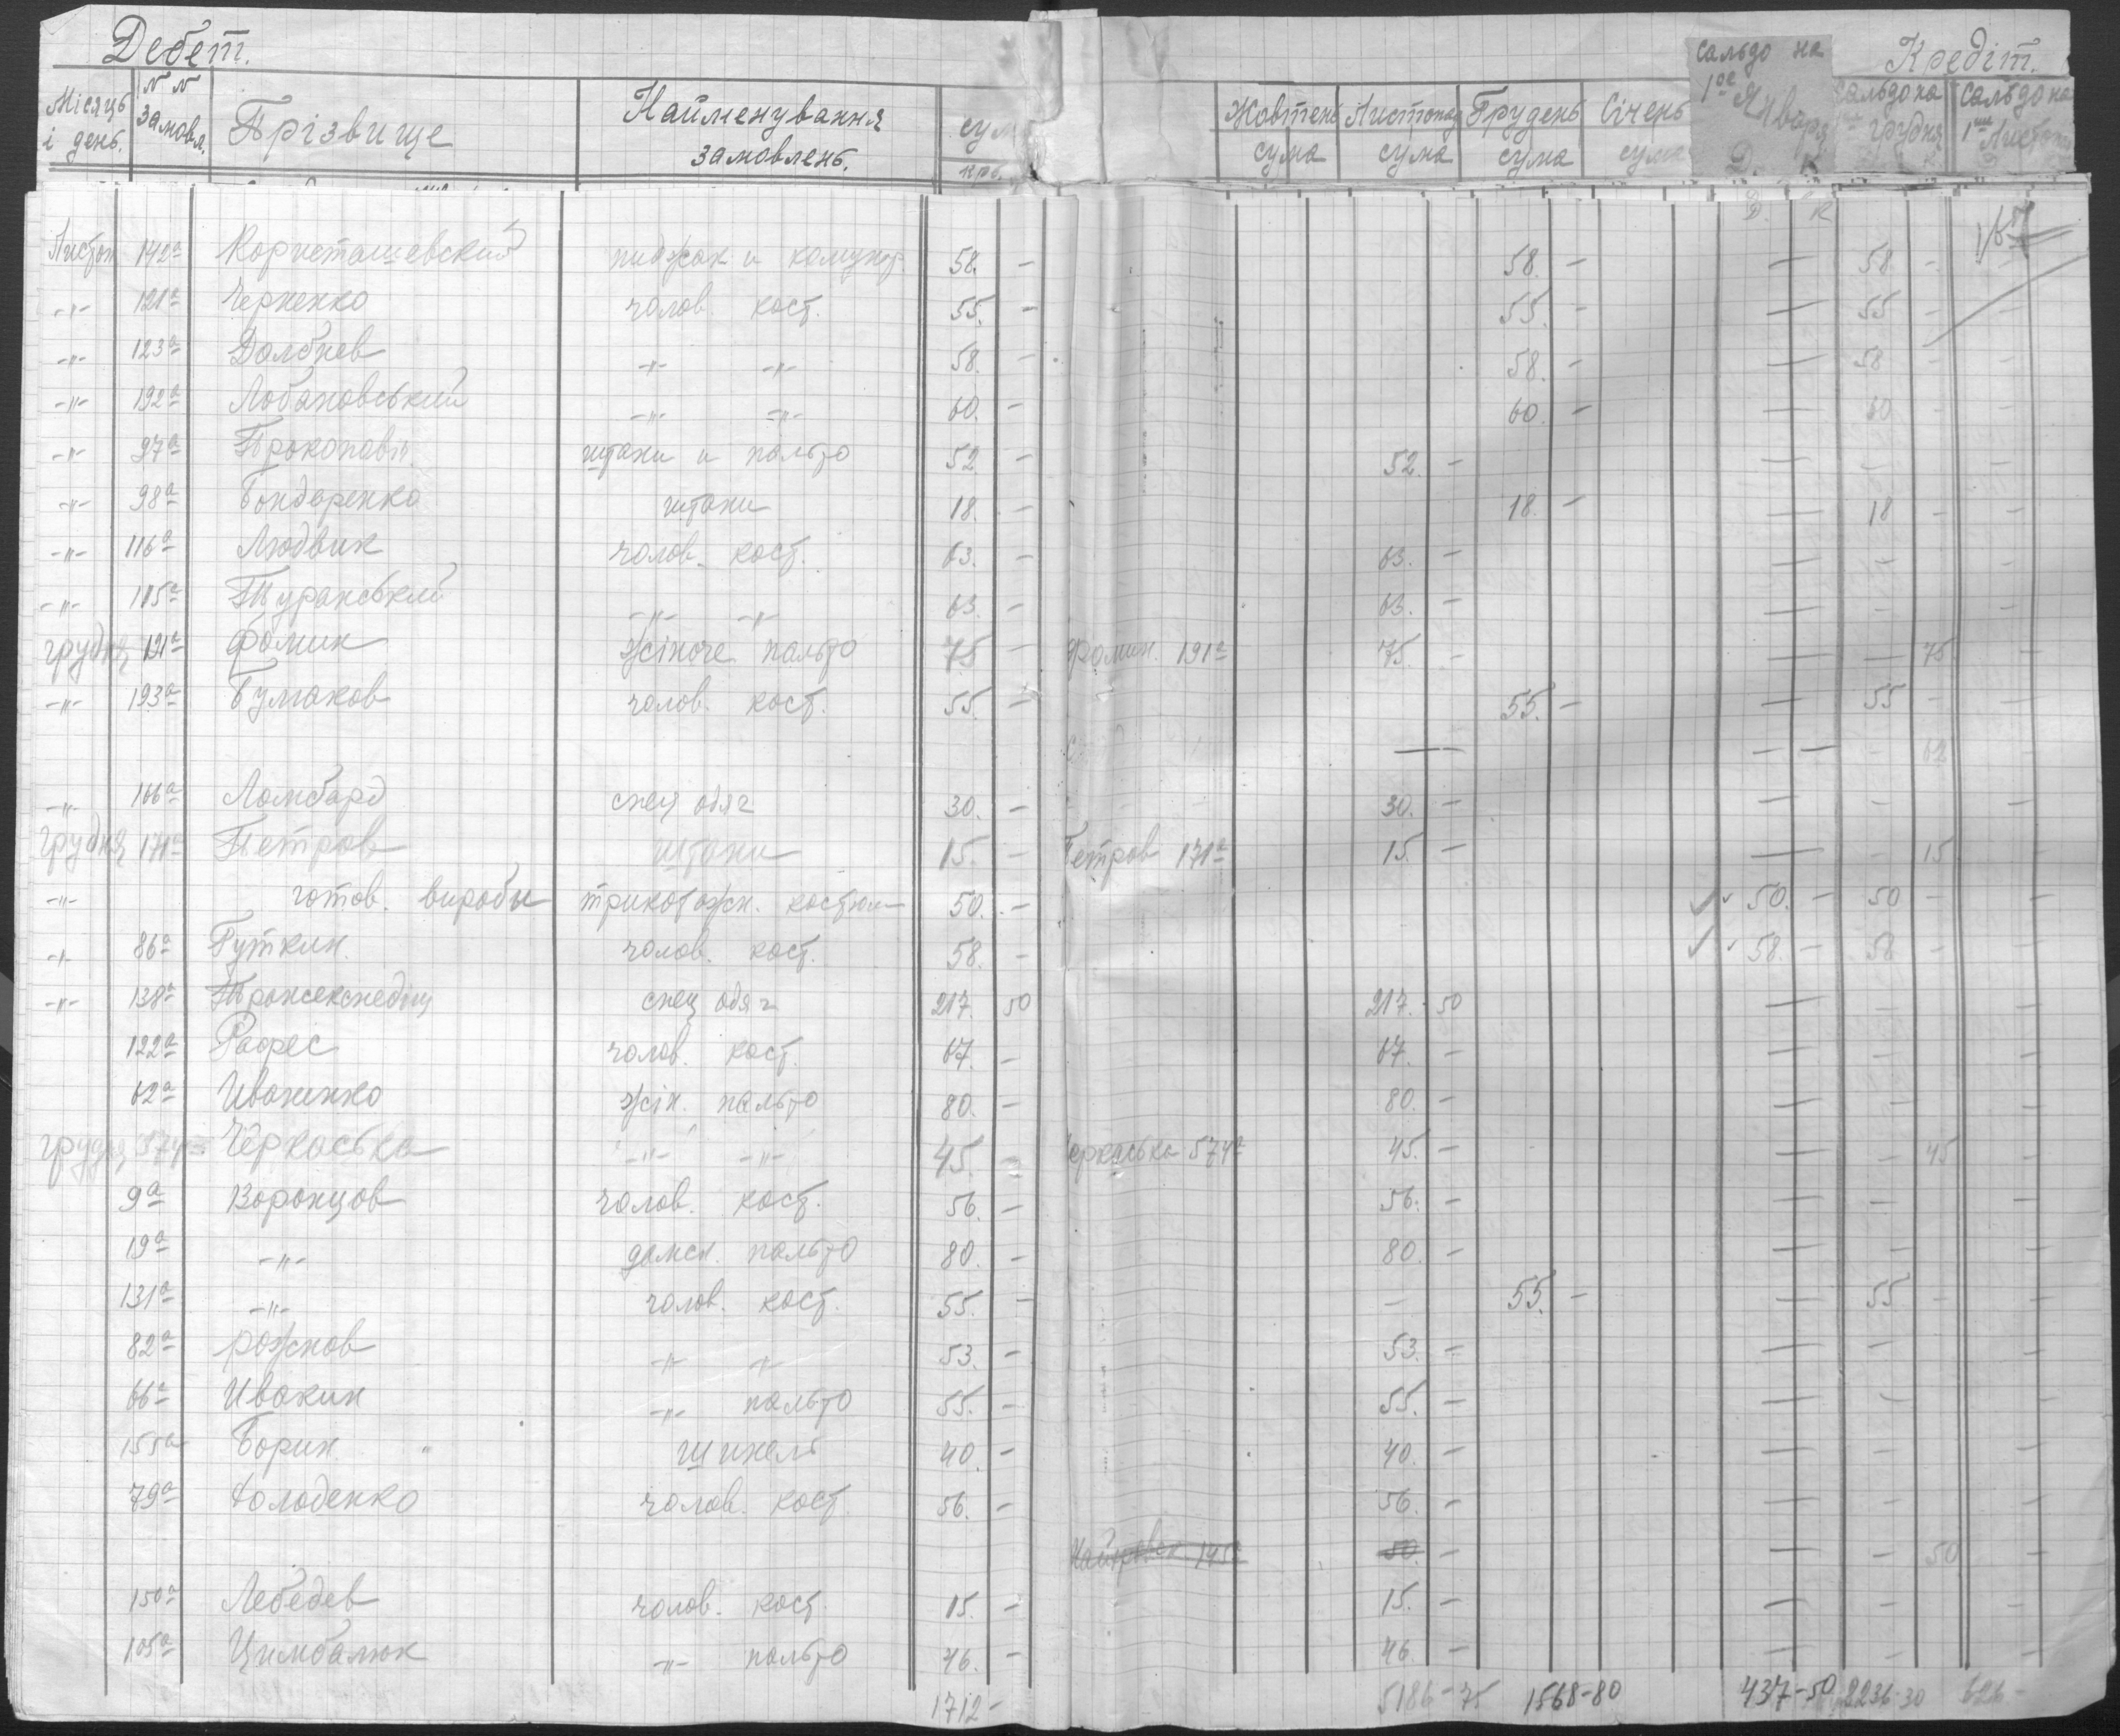 Дебет. Кредіт.
Місяць і день. №№ замовл. Прізвище Найменування замовлень. сум крб. Жовтень сума Листопад сума Грудень сума Січень сума Сальдо на 1ое Января Д. К сальдо на грудня сальдо на 1ше Листоп
Д. К
Листоп 142а пиджак и 58. — 58. — — 58 —
-"- 121а Черненко чолов. кост. 55. — 55. — — 55 — —
-"- 123а Долбнев -"- -"- 58. — 58. — — 58 — —
-"- 192а Лобановський -"- -"- 60. — 60 — — 60 — —
-"- 97а штани и пальто 52 — 52. — — — —
-"- 98а Бондаренко штани 18. — 18. — — 18 — —
-"- 116а Людвик чолов. кост. 63. — 63. — — — —
-"- 115а Туранський -"- -"- 63. — 63. — — — —
грудня 191а Фомин жіноче пальто 75 — Фомин. 191а 75. — — — 75 —
-"- 193а Бумаков чолов. кост. 55. — 55. — — 55 — —
— — — — 62 —
-"- 166а Ломбард спец одяг 30. — 30. — — — —
грудня 171а Петров штани 15. — Петров 171а 15. — — — 15 —
-"- готов. виробы трикотажн. костюм 50. — 50. — 50 — —
-"- 86а Гуткин. чолов. кост. 58. — 58. — 58 —
-"- 138а спец одяг 217. 50 217. 50 — — —
122а чолов. кост. 67. — 67. — — — —
62а Иваненко жін. пальто 80. — 80. — — — —
грудня 574а Черкаська -"- -"- 45. — Черкаська 574а 45. — — — 45 —
9а Воронцов чолов. кост. 56. — 56. — — — —
19а -"- дамск. пальто 80. — 80. — — — —
131а -"- чолов. кост. 55. — — 55. — — 55 — —
82а рожнов -"- -"- 53. — 53. — — — —
66а Ивакин -"- пальто 55. — 55. — — — —
155а Борин. " шинель 40. — 40. — — — —
79а Холоденко чолов. кост. 56. — 56. — — — —
145а 50. — — 50 —
150а Лебедев чолов. кост. 15. — 15. — — — —
105а Цимбалюк -"- пальто 46. — 46. — — — —
1712- 5186-75 1568-80 437-50 2236-30 626-